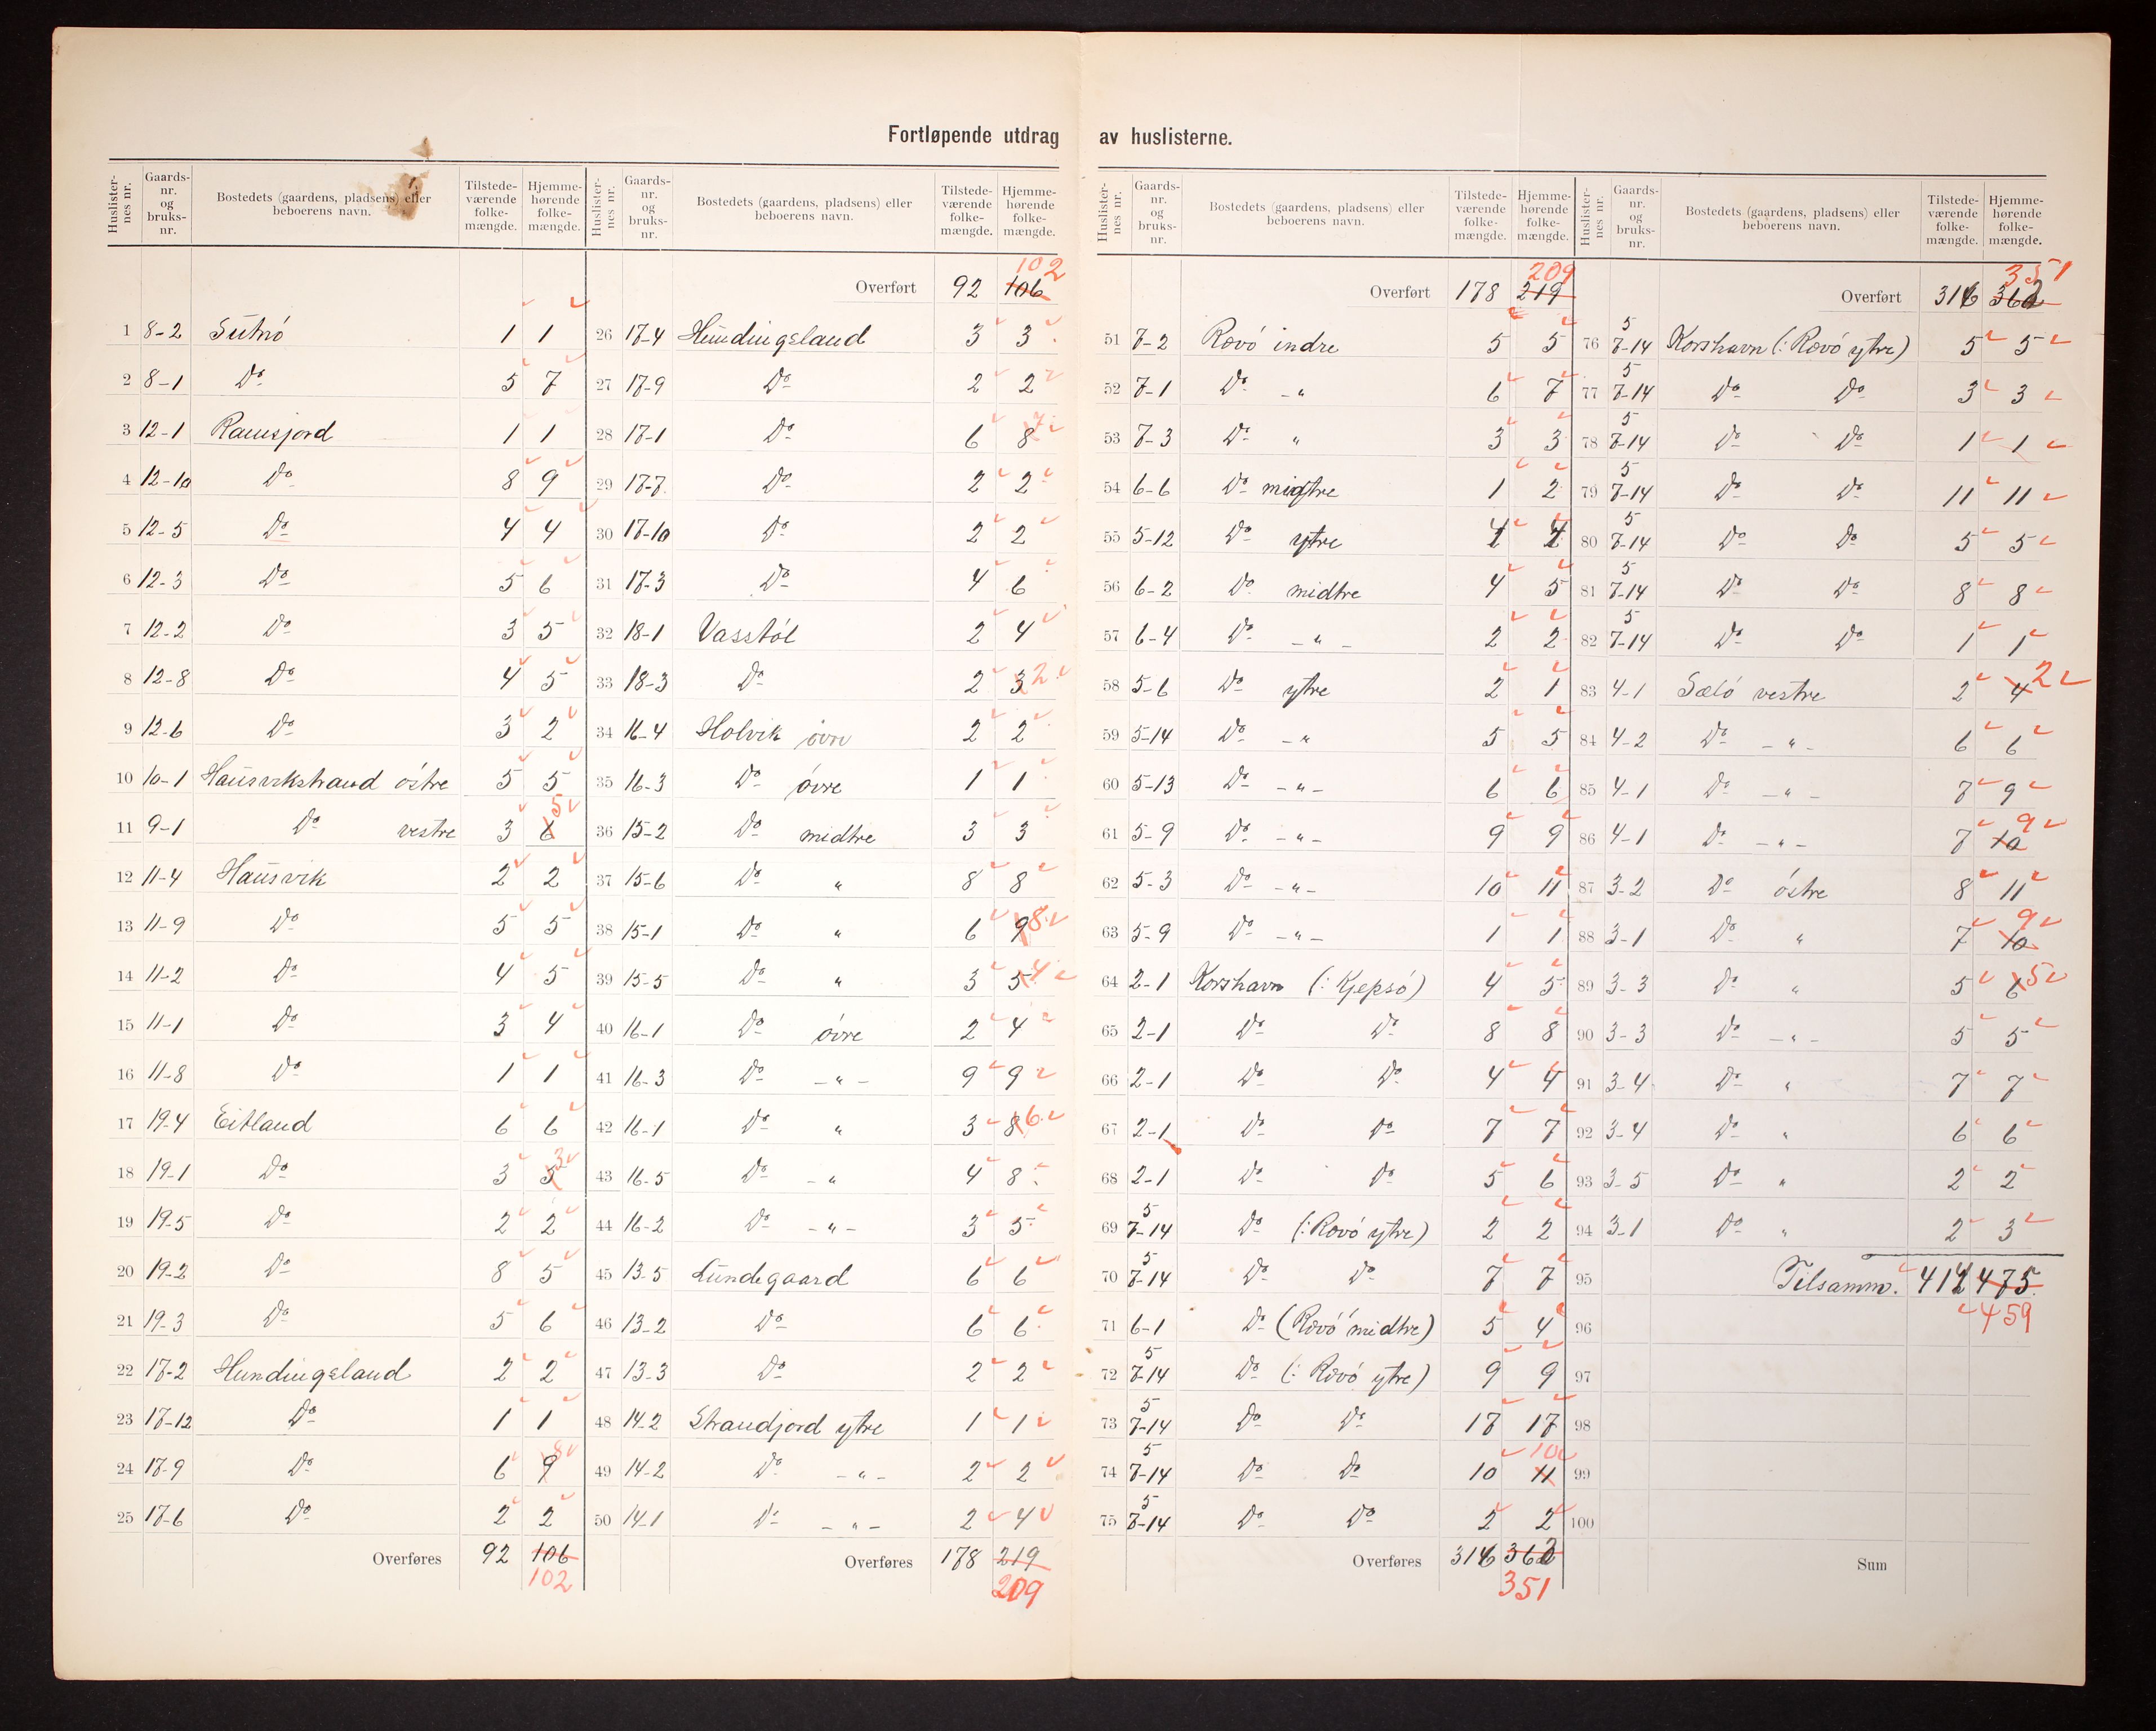 Fortløpende utdrag av huslisterne.
Huslisternes nr. Gaardsnr. og bruksnr. Bostedets (gaardens, pladsens) eller beboerens navn. Tilstedeværende folkemængde. Hjemmehørende folkemængde.
1 8-2 Sütnö 1 1
2 8-1 Do 5 7
3 12-1 Ramsfjord 1 1
4 12-10 Do 8 9
5 12-5 Do 4 4
6 12-3 Do 5 6
7 12-2 Do 3 5
8 12-8 Do 4 5
9 12-6 Do 3 2
10 10-1 Haüsvikstrand östre 5 5
11 9-1 Do vestre 3 6 5
12 11-4 Haüsvik 2 2
13 11-9 Do 5 5
14 11-2 Do 4 5
15 11-1 Do 3 4
16 11-8 Do 1 1
17 19-4 Eitland 6 6
18 19-1 Do 3 5 3
19 19-5 Do 2 2
20 19-2 Do 8 5
21 19-3 Do 5 6
22 17-2 Hundingsland 2 2
23 17-12 Do 1 1
24 17-9 Do 6 9 8
25 17-6 Do 2 2
Overføres 92 106
102
Huslisternes nr. Gaardsnr. og bruksnr. Bostedets (gaardens, pladsens) eller beboerens navn. Tilstedeværende folkemængde. Hjemmehørende folkemængde.
102
Overført 92 106
26 17-4 Hündingsland 3 3
27 17-9 Do 2 2
28 17-1 Do 6 8 7
29 17-7 Do 2 2
30 17-10 Do 2 2
31 17-3 Do 4 6
32 18-1 Vasstöl 2 4
33 18-3 Do 2 3 2
34 16-4 Holvik övre 2 2
35 16-3 Do övre 1 1
36 15-2 Do midtre 3 3
37 15-6 Do " 8 8
38 15-1 Do " 6 9 8
39 15-5 Do " 3 5 4
40 16-1 Do övre 2 4
41 16-3 Do - " - 9 9
42 16-1 Do " 3 8 6
43 16-5 Do - " 4 8
44 16-2 Do - " - 3 5
45 13-5 Lündegaard 6 6
46 13-2 Do 6 6
47 13-3 Do 2 2
48 14-2 Strandfjord ytre 1 1
49 14-2 Do - " - 2 2
50 14-1 Do - " - 2 4
Overføres 178 219
209
Huslisternes nr. Gaardsnr. og bruksnr. Bostedets (gaardens, pladsens) eller beboerens navn. Tilstedeværende folkemængde. Hjemmehørende folkemængde.
209
Overført 178 219
51 7-2 Rövö indre 5 5
52 7-1 Do - " 6 7
53 7-3 Do " 3 3
54 6-6 Do midtre 1 2
55 5-12 Do ytre
56 6-2 Do midtre 4 5
57 6-4 Do - " - 2 2
58 5-6 Do ytre 2 1
59 5-14 Do - " 5 5
60 5-13 Do - " - 6 6
61 5-9 Do - " - 9 9
62 5-3 Do - " - 10 11
63 5-9 Do - " - 1 1
64 2-1 Korshavn (: Kjepsö) 4 5
65 2-1 Do Do 8 8
66 2-1 Do Do 4 4
67 2-1 Do Do 7 7
68 2-1 Do Do 5 6
5
69 7-14 Do (: Rövö ytre) 2 2
5
70 7-14 Do Do 7 7
71 6-1 Do (Rövö midtre) 5 4
5
72 7-14 Do (: Rövö ytre) 9 9
5
73 7-14 Do Do 17 17
5
74 7-14 Do Do 10 11 10
5
75 7-14 Do Do 2 2
Overføres 316 362
351
Huslisternes nr. Gaardsnr. og bruksnr. Bostedets (gaardens, pladsens) eller beboerens navn. Tilstedeværende folkemængde. Hjemmehørende folkemængde.
351
Overført 316 362
5
76 7-14 Korshavn (: Rövö ytre) 5 5
5
77 7-14 Do Do 3 3
5
78 7-14 Do Do 1 1
5
79 7-14 Do Do 11 11
5
80 7-14 Do Do 5 5
5
81 7-14 Do Do 8 8
5
82 7-14 Do Do 1 1
83 4-1 Sælö vestre 2 4 2
84 4-2 Do - " - 6 6
85 4-1 Do - " - 7 9
86 4-1 Do - " - 7 10 9
87 3-2 Do östre 8 11
88 3-1 Do " 7 10 9
89 3-3 Do " 5 6 5
90 3-3 Do - " - 5 5
91 3-4 Do " 7 7
92 3-4 Do " 6 6
93 3-5 Do " 2 2
94 3-1 Do " 2 3
95 Tilsamm. 412 475
96 459
97
98
99
100
Sum